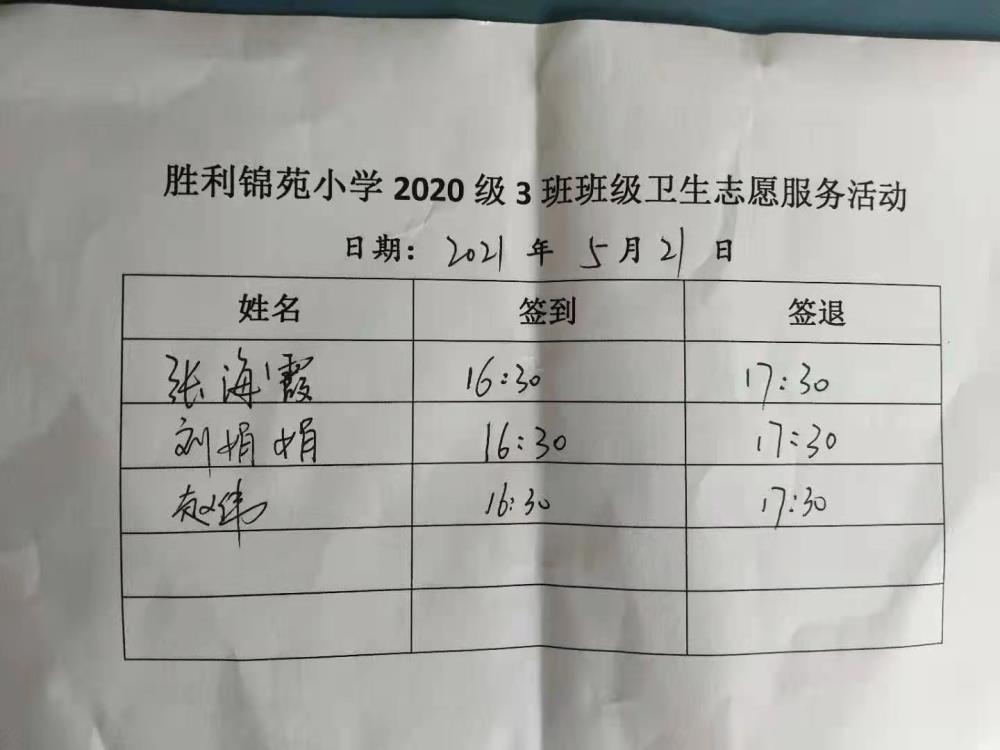 胜利锦苑小学 2020 级 3 班班级卫生志愿服务活动
日期： 2021 年 5 月 21 日
姓名 签到 签退
张海霞 16:30 17:30
刘娟娟 16:30 17:30
赵伟 16:30 17:30